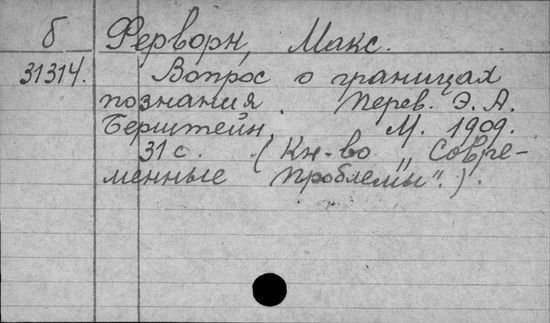 б Ферворн, Макс.
31314. Вопрос о границах
познания. Перев. Э. А.
Берштейн. М. 1909.
31 с. (Кн-во „Совре-
менные проблемы".).